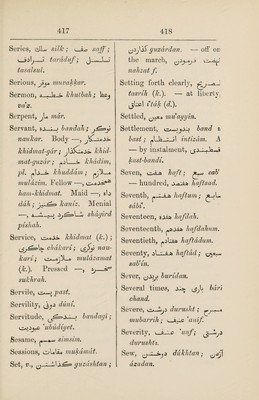 417
418
Series, سلك silk; صف saff;
ترادف tarâduf; تسلسل
tasalsul.
Serious, موقر muvaḳḳar.
Sermon, خطبه khutbah; وعظ
va'z.
Serpent, مار mâr.
Servant, بنده bandah; نوكر
naukar. Body —, خدمتگار
khidmat-gâr; خدمتگذار khid-
mat-guzâr; خادم khâdim,
pl. خدام khuddâm; ملازم
mulâzim. Fellow —, همخدمت
ham-khidmat. Maid —, داه
dâh; كنيز kanîz. Menial
—, شاگرد پيشه shâgird
pîshah.
Service, خدمت khidmat (k.);
چاكري châkarî; نوكري nau-
karî; ملازمت mulâzamat
(k.). Pressed —, سخره
sukhrah.
Servile, پست past.
Servility, دوني dûnî.
Servitude, بندگي bandagî;
عبوديت 'ubûdîyat.
Sesame, سمسم simsim.
Sessions, مقامات muḳâmât.
Set, v., گذاشتن guzâshtan;
گذاردن guzârdan. — off on
the march, نهضت فرمودن
nahzat f.
Setting forth clearly, تصريح
tasrîh (k.). — at liberty,
اعتاق i'tâḳ (d.).
Settled, معين mu'ayyin.
Settlement, بندوبست band u
bast; انتظام intizâm. A
— by instalment, قسط بندي
ḳast-bandî.
Seven, هفت haft; سبع sab'
— hundred, هفتصد haftsad.
Seventh, هفتم haftum; سابع
sâbi'.
Seventeen, هفده hafdah.
Seventeenth, هفدهم hafdahum.
Seventieth, هفتادم haftâdum.
Seventy, هفتاد haftâd; سبعين
sab'în.
Sever, بريدن burîdan.
Several times, باري چند bârî
chand.
Severe, درشت durusht; محرق
muharrik; عنيف 'anîf.
Severity, عنف 'unf; درشتي
durushtî.
Sew, دوختن dûkhtan; آژدن
âzadan.